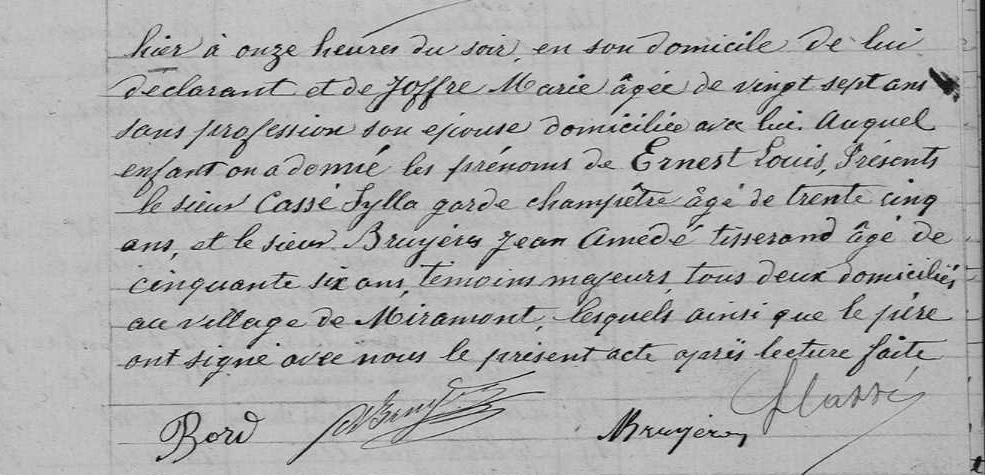 hier à onze heures du soir, en son domicile de lui
declarant et de Joffre Marie âgée de vingt sept ans
sans profession son epouse domiciliée avec lui. Auquel
enfant on a donné les prénoms de Ernest Louis, Présents
le sieur Cassé Sylla garde champêtre âgé de trente cinq
ans, et le sieur Bruyère Jean Amédé tisserand âgé de
cinquante six ans, temoins majeurs, tous deux domiciliés
au village de Miramont, lesquels ainsi que le père
ont signé avec nous le présent acte après lecture faite
Bord Bruyère Cassé